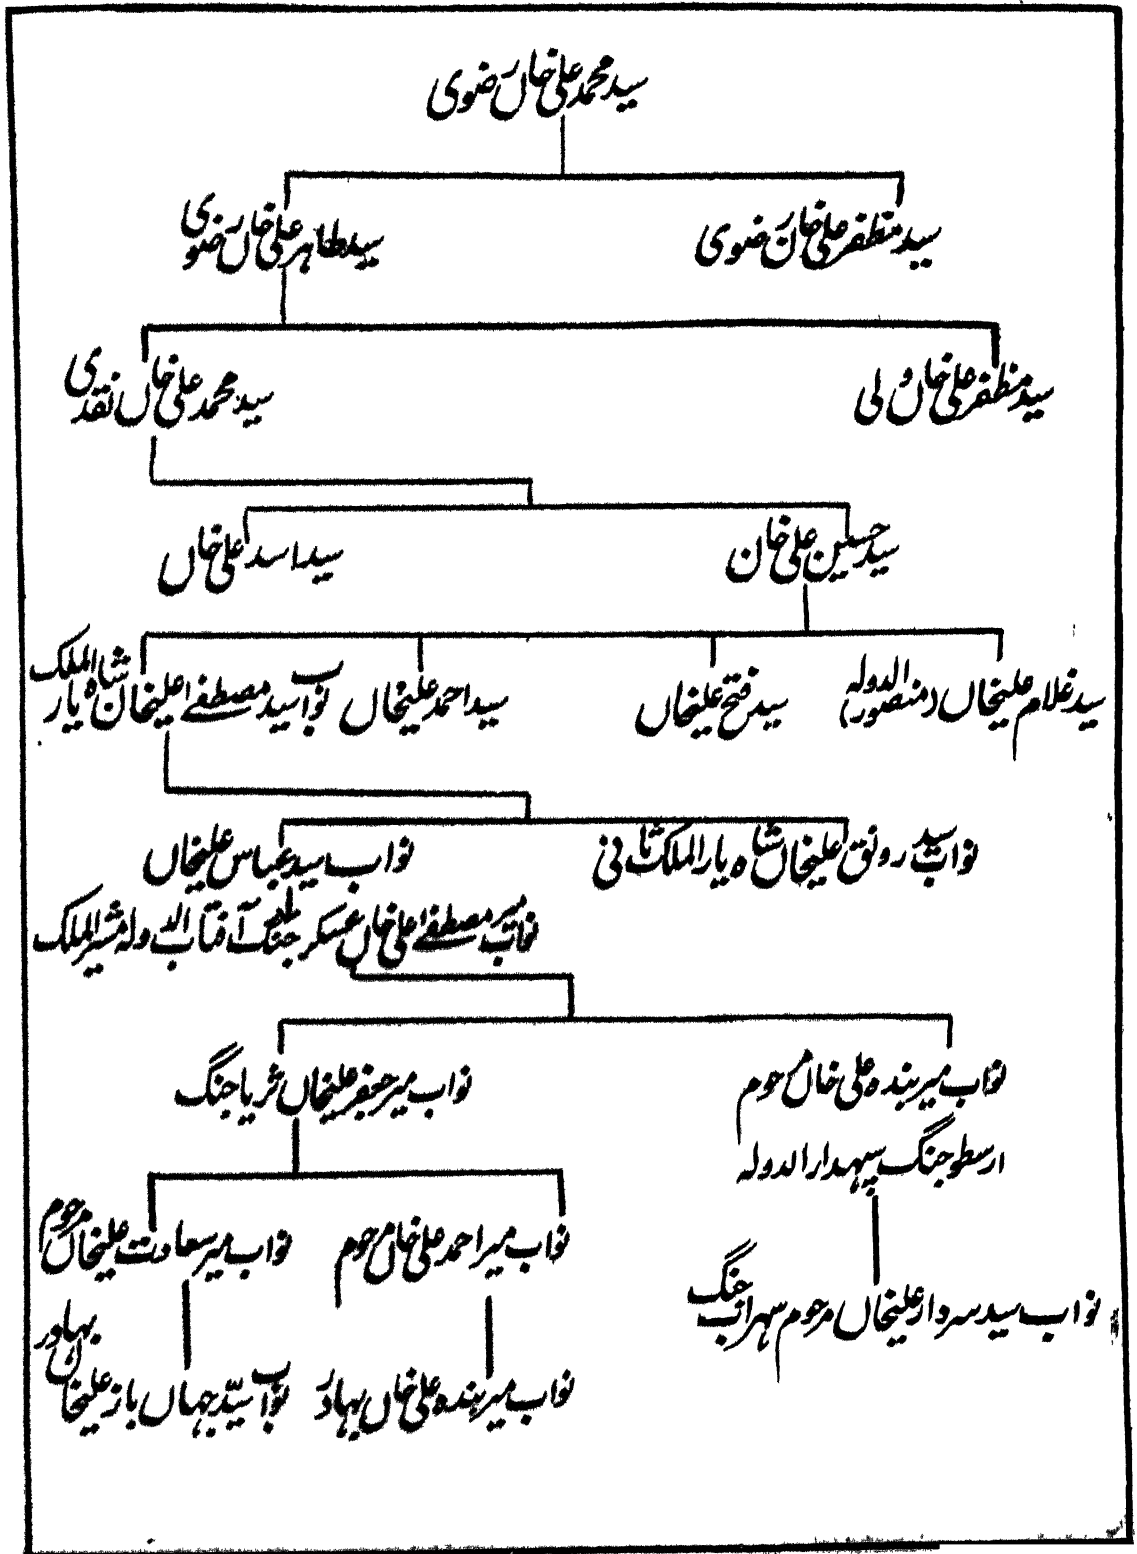 سید محمد علی خاں رضوی
سید مظفر علی خان رضوی
سید طاہر علی خاں رضوی
سید مظفر علی خاں ولی
سید محمد علی خاں نقدی
سید حسین علی خان
سید اسد علی خاں
سید غلام علیخاں (منصور الدولہ)
سید فتح علیخاں
سید احمد علیخاں
نواب سید مصطفےٰ علیخان شاہ یار الملک
نواب سید رونق علیخاں شاہ یار الملک ثانی
نواب سید عباس علیخاں
نواب میر مصطفےٰ علی خاں عسکر جنگ آفتاب الدولہ مشیر الملک
نواب میر بندہ علی خاں مرحوم
ارسطو جنگ سپہدار الدولہ
نواب میر جعفر علیخاں ثریا جنگ
نواب میر احمد علی خاں مرحوم
نواب میر سعادت علیخاں مرحوم
نواب سید سردار علیخاں مرحوم سہراب جنگ
نواب میر بندہ علی خاں بہادر
نواب سیّد جہاں باز علیخاں بہادر